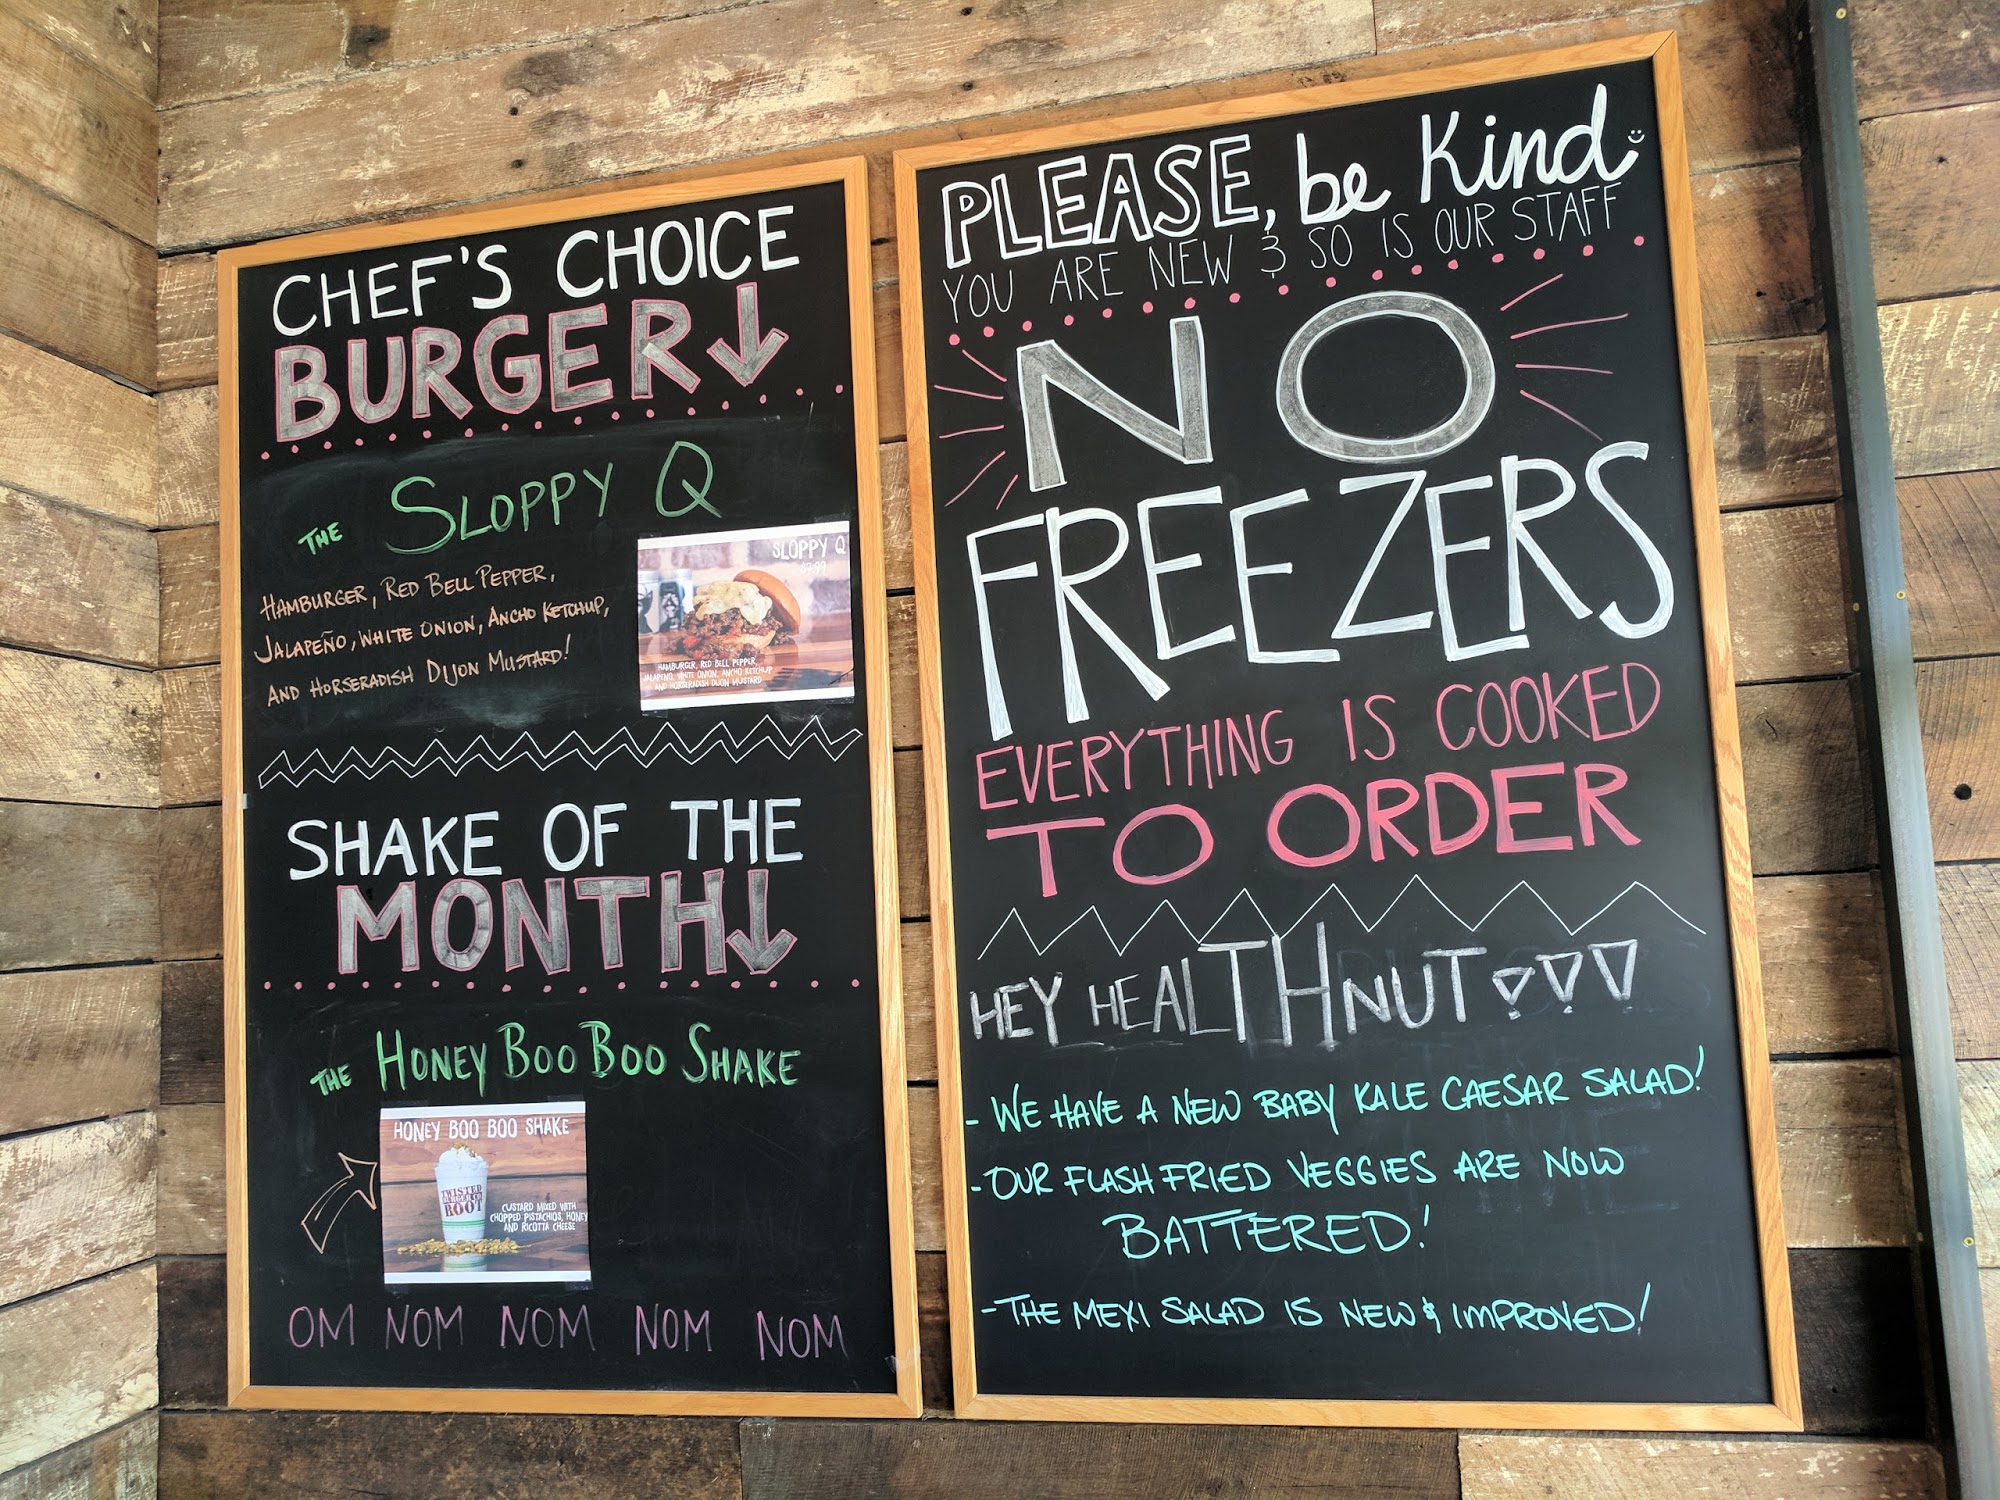 CHEF'S CHOICE
BURGER
THE SLOPPY Q
HAMBURGER, RED BELL PEPPER,
JALAPEÑO, WHITE ONION, ANCHO KETCHUP,
AND HORSERADISH DIJON MUSTARD!
SLOPPY Q
$7.99
HAMBURGER, RED BELL PEPPER,
JALAPENO, WHITE ONION, ANCHO KETCHUP
AND HORSERADISH DIJON MUSTARD
SHAKE OF THE
MONTH
THE HONEY BOO BOO SHAKE
HONEY BOO BOO SHAKE
TWISTED
BURGER CO
ROOT
CUSTARD MIXED WITH
CHOPPED PISTACHIOS, HONEY
AND RICOTTA CHEESE
OM NOM NOM NOM NOM
PLEASE, be Kind
YOU ARE NEW & SO IS OUR STAFF
NO
FREEZERS
EVERYTHING IS COOKED
TO ORDER
HEY HEALTHNUT!!!
- WE HAVE A NEW BABY KALE CAESAR SALAD!
- OUR FLASH FRIED VEGGIES ARE NOW
BATTERED!
- THE MEXI SALAD IS NEW & IMPROVED!